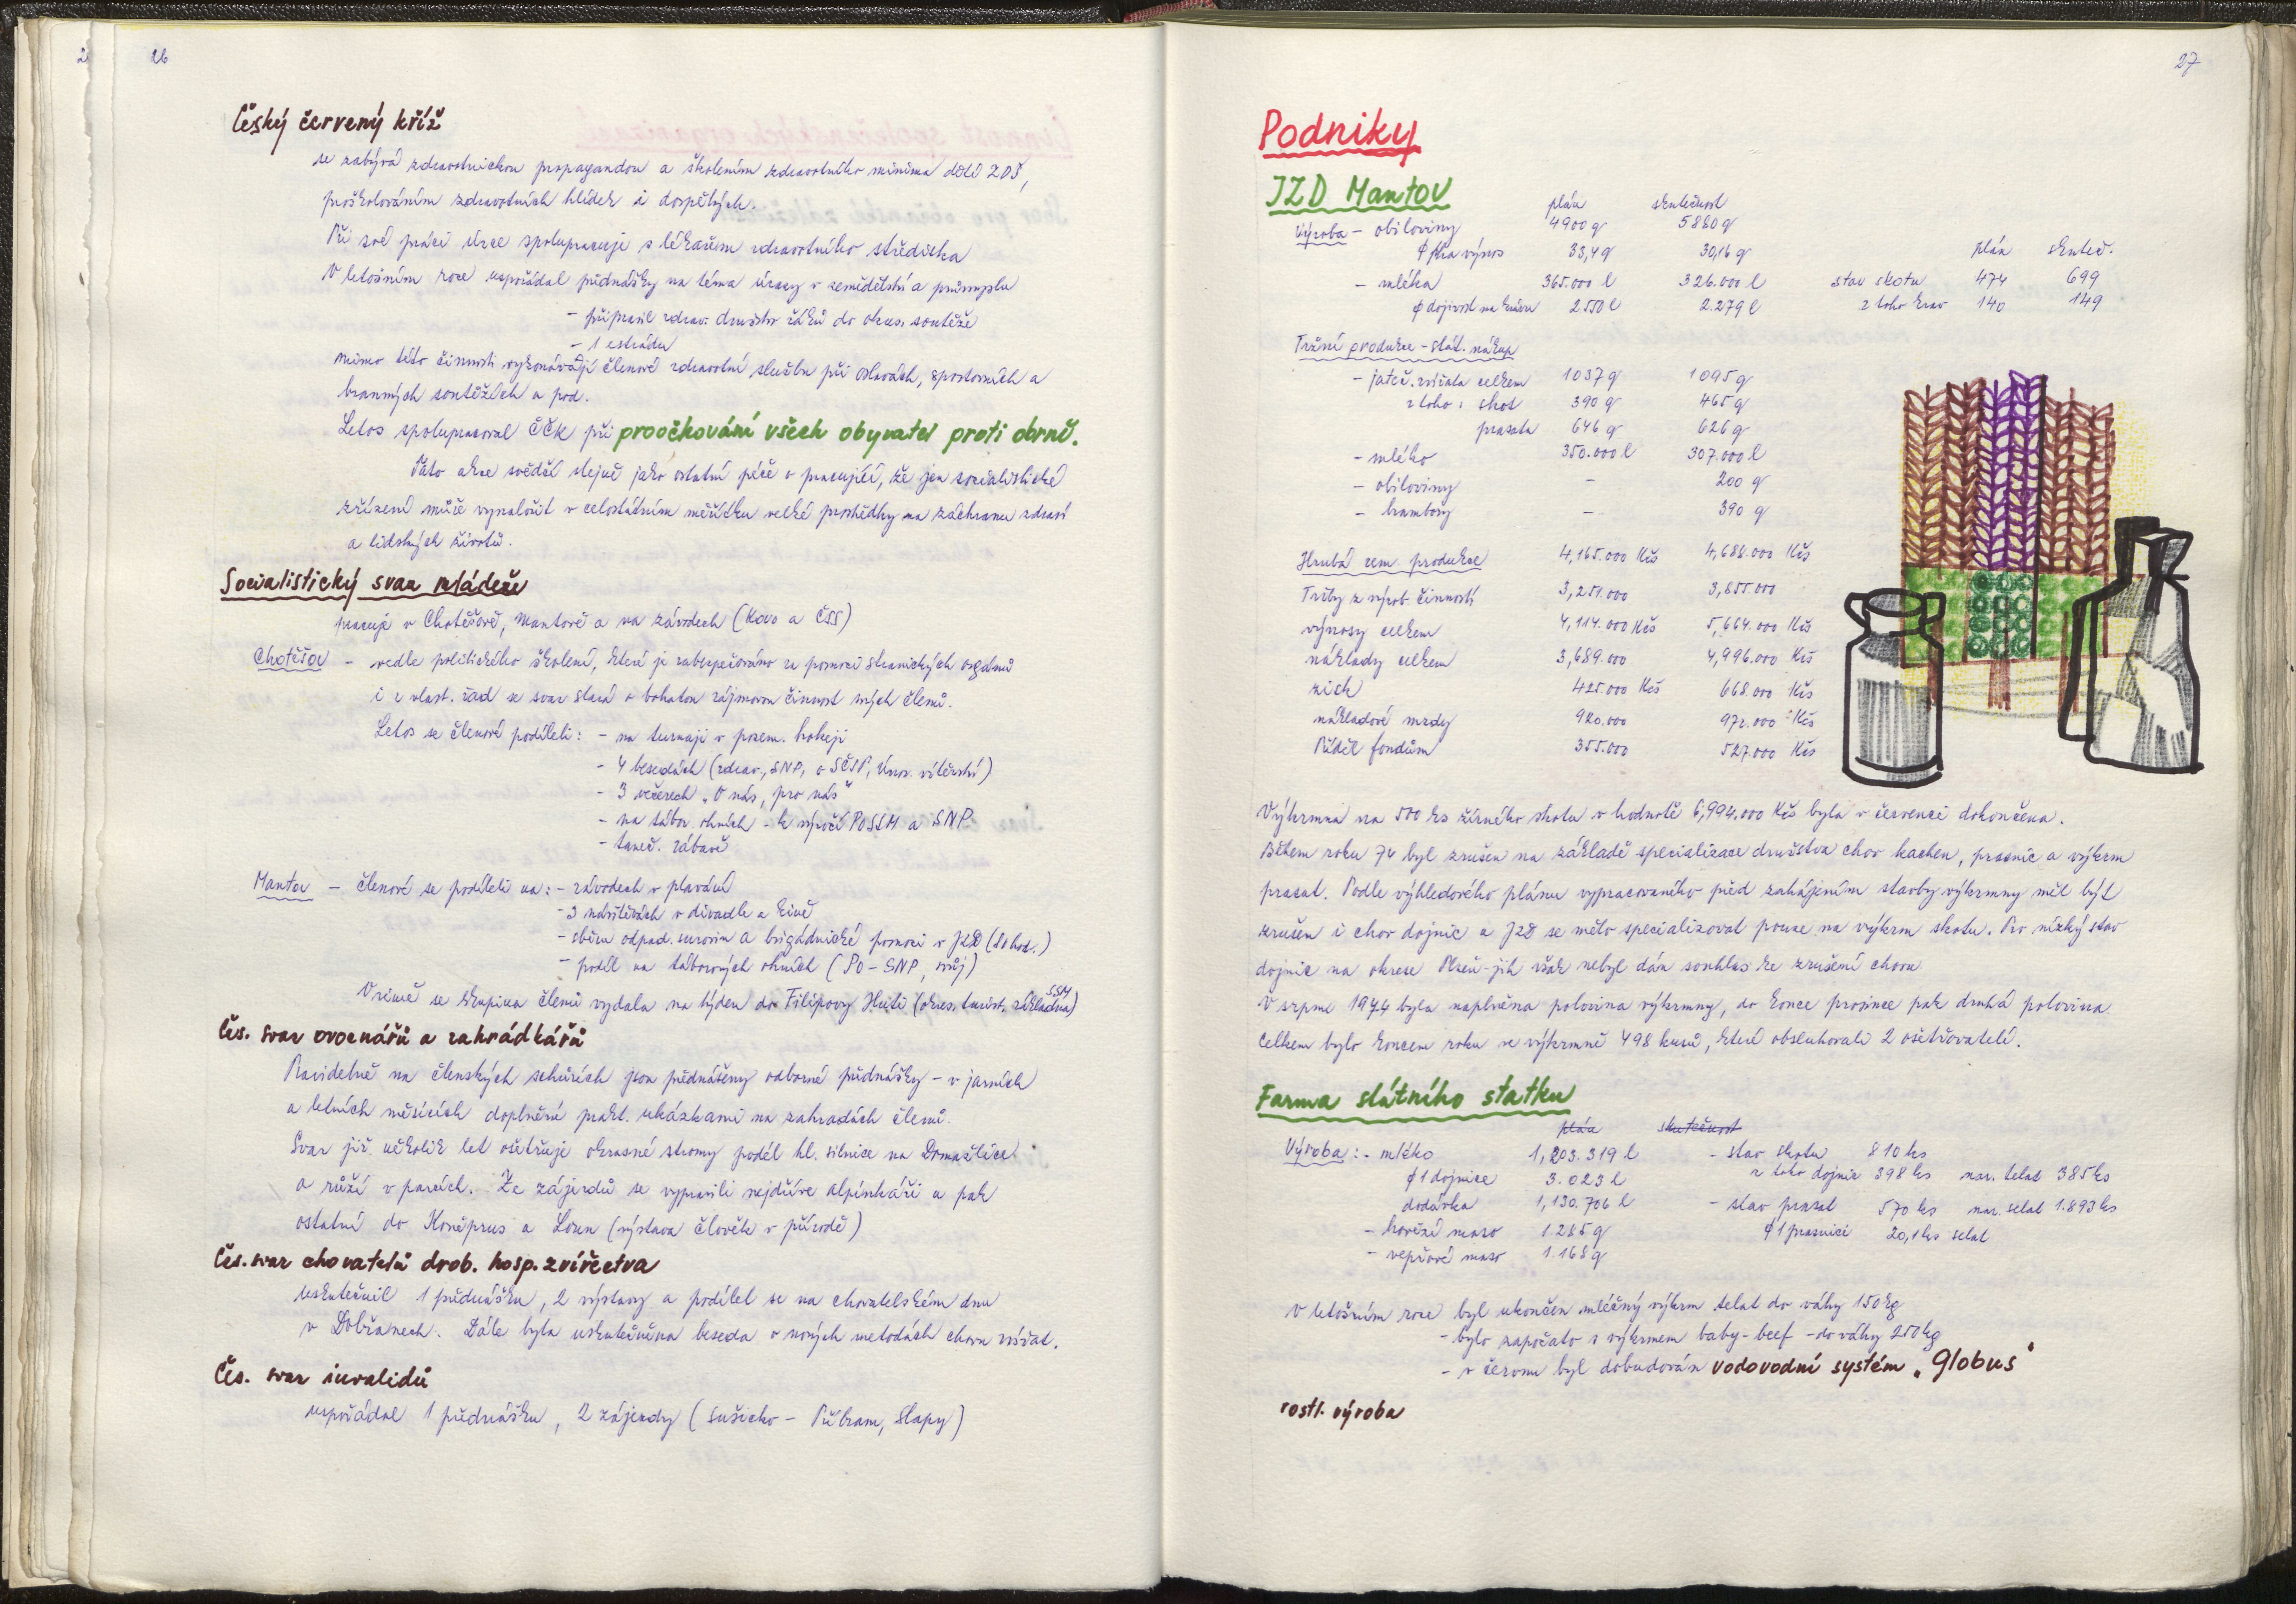 26
Český červený kříž
se zabývá zdravotnickou propagandou a školením zdravotního minima dětí ZDŠ,
proškolováním zdravotních hlídek i dospělých.
Při své práci úzce spolupracuje s lékařem zdravotního střediska
V letošním roce uspořádal přednášky na téma úrazy v zemědělství a průmyslu
- připravil zdrav. družstvo žáků do okres. soutěže
- 1 estrádu
mimo této činnosti vykonávají členové zdravotní službu při oslavách, sportovních a
branných soutěžích a pod.
Letos spolupracoval ČČK při proočkování všech obyvatel proti obrně.
Tato akce svědčí stejně jako ostatní péče o pracující, že jen socialistické
zřízení může vynaložit v celostátním měřítku velké prostředky na záchranu zdraví
a lidských životů.
Socialistický svaz mládeže
pracuje v Chotěšově, Mantově a na závodech (Kovo a ČSS)
Chotěšov - vedle politického školení, které je zabezpečováno za pomoci stranických orgánů
i z vlast. řad se svaz stará o bohatou zájmovou činnost svých členů.
Letos se členové podíleli: - na turnaji v pozem. hokeji
- 4 besedách (zdrav., SNP, o SČSP, Únor. vítězství)
- 3 večerech "O nás, pro nás"
- na tábor. ohních - k výročí PO SSM a SNP
- taneč. zábavě
Mantov - členové se podíleli na: - závodech v plavání
- 3 návštěvách v divadle a kině
- sběru odpad. surovin a brigádnické pomoci v JZD (80 hod.)
- podíl na táborových ohních (PO - SNP, svůj)
V zimě se skupina členů vydala na týden do Filipovy Huti (okres. turist. základna SSM)
Čes. svaz ovocnářů a zahrádkářů
Pravidelně na členských schůzích jsou přednášeny odborné přednášky - v jarních
a letních měsících doplněné prakt. ukázkami na zahradách členů.
Svaz již několik let ošetřuje okrasné stromy podél hl. silnice na Domažlice
a růží v parcích. Ze zájezdů se vypravili nejdříve alpinkáři a pak
ostatní do Koněprus a Loun (výstava Člověk v přírodě)
Čes. svaz chovatelů drob. hosp. zvířectva
uskutečnil 1 přednášku, 2 výstavy a podílel se na chovatelském dnu
v Dobřanech. Dále byla uskutečněna beseda o nových metodách chovu zvířat.
Čes. svaz invalidů
uspořádal 1 přednášku, 2 zájezdy (Sušicko - Příbram, Slapy)
27
Podniky
JZD Mantov
plán skutečnost
Výroba - obiloviny 4900 q 5880 q
ø ha výnos 33,4 q 30,16 q plán skuteč.
- mléka 365.000 l 326.000 l stav skotu 474 699
ø dojivost na krávu 2550 l 2.279 l z toho krav 140 149
Tržní produkce - stát. nákup
- jateč. zvířata celkem 1037 q 1095 q
z toho: skot 390 q 465 q
prasata 646 q 626 q
- mléko 350.000 l 307.000 l
- obiloviny - 200 q
- brambory - 390 q
Hrubá zem. produkce 4,165.000 Kčs 4,688.000 Kčs
Tržby z výrob. činnosti 3,251.000 3,855.000
výnosy celkem 4,114.000 Kčs 5,664.000 Kčs
náklady celkem 3,689.000 4,996.000 Kčs
zisk 425.000 Kčs 668.000 Kčs
nákladové mzdy 920.000 972.000 Kčs
Příděl fondům 355.000 527.000 Kčs
Výkrmna na 500 ks žírného skotu v hodnotě 6,994.000 Kčs byla v červenci dokončena.
Během roku 74 byl zrušen na základě specializace družstva chov kachen, prasnic a výkrm
prasat. Podle výhledového plánu vypracovaného před zahájením stavby výkrmny měl být
zrušen i chov dojnic a JZD se mělo specializovat pouze na výkrm skotu. Pro nízký stav
dojnic na okrese Plzeň-jih však nebyl dán souhlas ke zrušení chovu.
V srpnu 1974 byla naplněna polovina výkrmny, do konce prosince pak druhá polovina.
Celkem bylo koncem roku ve výkrmně 498 kusů, které obsluhovali 2 ošetřovatelé.
Farma státního statku
plán skutečnost
Výroba: - mléko 1,203.319 l - stav skotu 810 ks
ø 1 dojnice 3.023 l z toho dojnic 398 ks nar. telat 385 ks
dodávka 1,130.706 l - stav prasat 570 ks nar. selat 1.893 ks
- hovězí maso 1.285 q ø 1 prasnici 20,1 ks selat
- vepřové maso 1.168 q
V letošním roce byl ukončen mléčný výkrm telat do váhy 150 kg
- bylo započato s výkrmem baby-beef - do váhy 250 kg
- v červnu byl dobudován vodovodní systém "Globus"
rostl. výroba